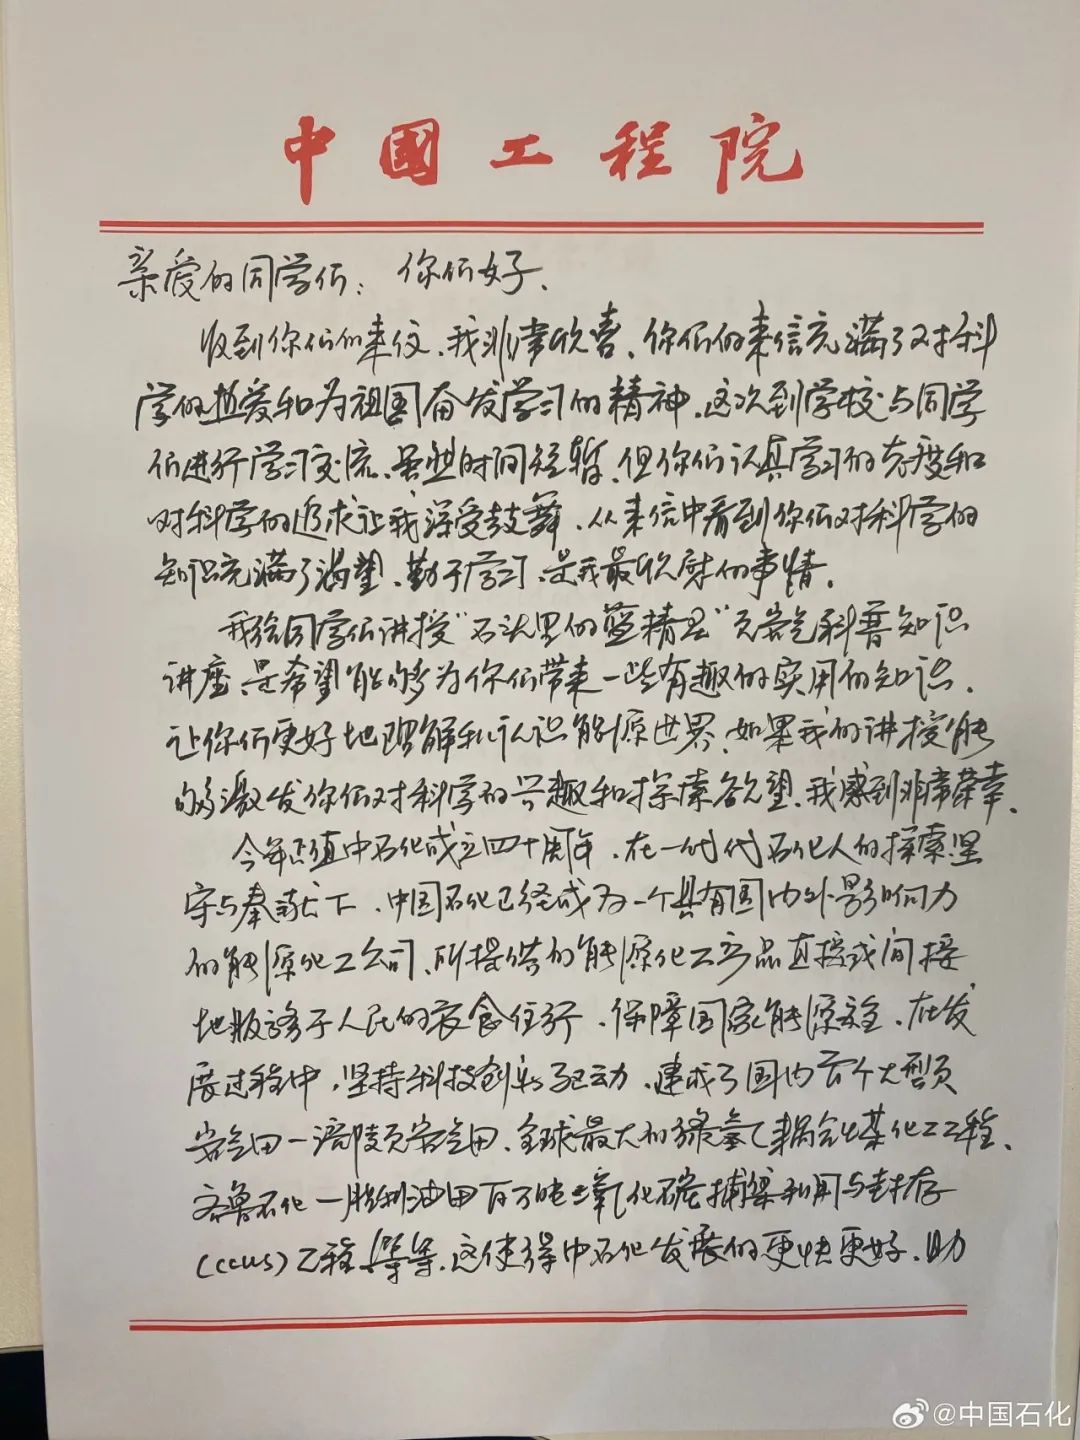 中国工程院
亲爱的同学们：你们好、
收到你们的来信、我非常欣喜、你们的来信充满了对科
学的热爱和为祖国奋发学习的精神、这次到学校与同学
们进行学习交流、虽然时间短暂、但你们认真学习的态度和
对科学的追求让我深受鼓舞、从来信中看到你们对科学的
知识充满了渴望、勤于学习、是我最欣慰的事情、
我给同学们讲授“石头里的蓝精灵”页岩气科普知识
讲座、是希望能够为你们带来一些有趣的实用的知识、
让你们更好地理解和认识能源世界、如果我的讲授能
够激发你们对科学的兴趣和探索欲望、我感到非常荣幸、
今年正值中石化成立四十周年、在一代代石化人的探索坚
守与奉献下、中国石化已经成为一个具有国内外影响力
的能源化工公司、所提供的能源化工产品直接或间接
地服务于人民的衣食住行、保障国家能源安全、在发
展过程中，坚持科技创新驱动、建成了国内首个大型页
岩气田－涪陵页岩气田、全球最大的绿氢耦合煤化工工程、
齐鲁石化－胜利油田百万吨二氧化碳捕集利用与封存
(ccus)工程等等、这使得中石化发展的更快更好、助
@中国石化